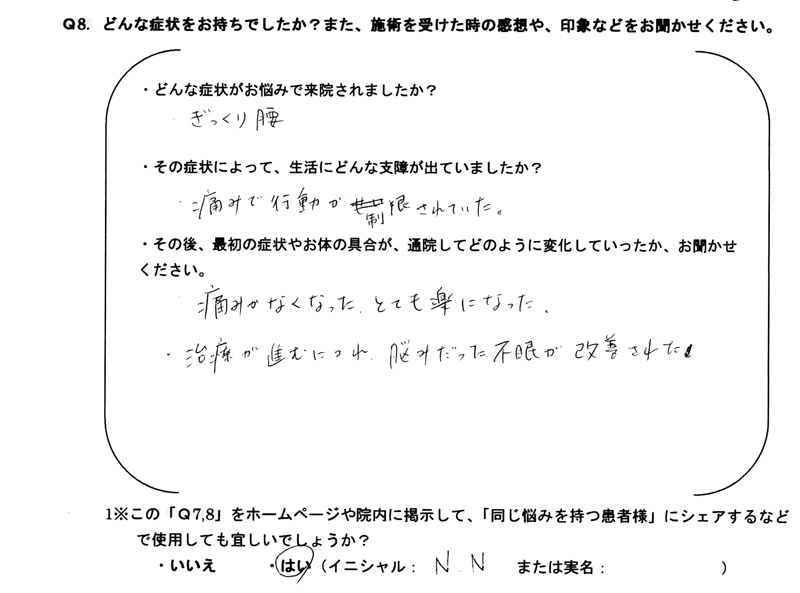 Q8. どんな症状をお持ちでしたか？また、施術を受けた時の感想や、印象などをお聞かせください。
・どんな症状がお悩みで来院されましたか？
・ぎっくり腰
・その症状によって、生活にどんな支障が出ていましたか？
・痛みで行動が制限されていた。
・その後、最初の症状やお体の具合が、通院してどのように変化していったか、お聞かせ
ください。
・痛みがなくなった、とても楽になった、
・治療が進むにつれ、脳みだった不眠が改善された
1※この「Q7,8」をホームページや院内に掲示して、「同じ悩みを持つ患者様」にシェアするなど
で使用しても宜しいでしょうか？
・いいえ ・はい（イニシャル： N.N または実名： ）